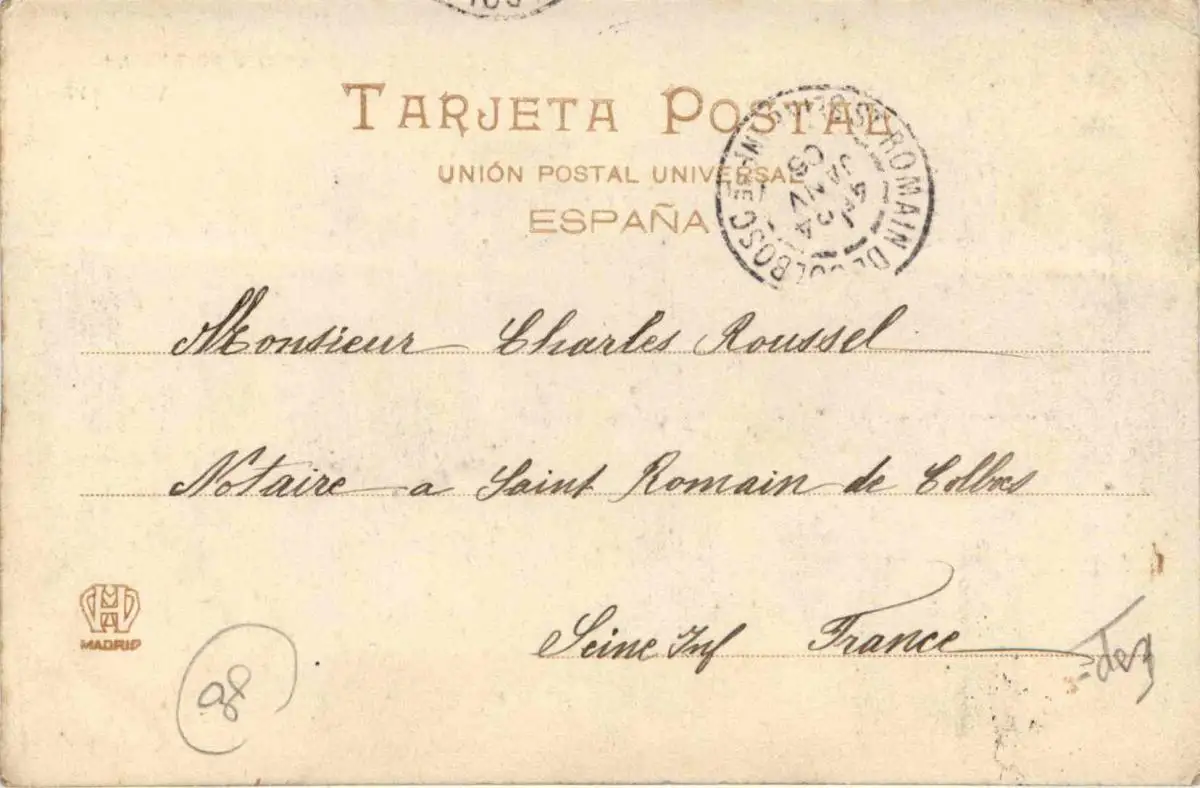 TARJETA POSTAL
UNIÓN POSTAL UNIVERSAL
ESPAÑA
ST ROMAIN DE COLBOSC
JANV
03
Monsieur Charles Roussel
Notaire a Saint Romain de Colbos
Seine Inf France
MADRID
98